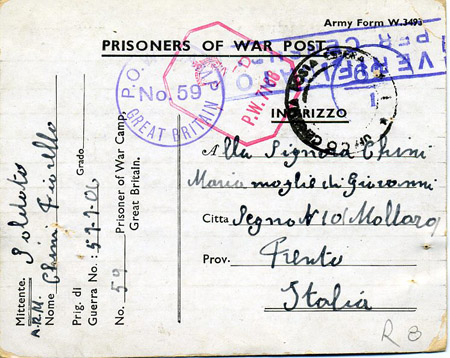 Army Form W.3493
PRISONERS OF WAR POST
P.O. CAMP
No. 59
GREAT BRITAIN
P.W. 7168
VERIFICATO
PER CENSURA
POSTA ESTERA
INDIRIZZO
Alla Signora Chini
Maria moglie di Giovanni
Città Segno N 10 (Mollaro)
Prov. Trento
Italia
R 8
Mittente. Soldato
A.R.M.
Nome Chini Fiorello
Grado
Prig. di
Guerra No.:
No. 59 Prisoner of War Camp,
Great Britain.